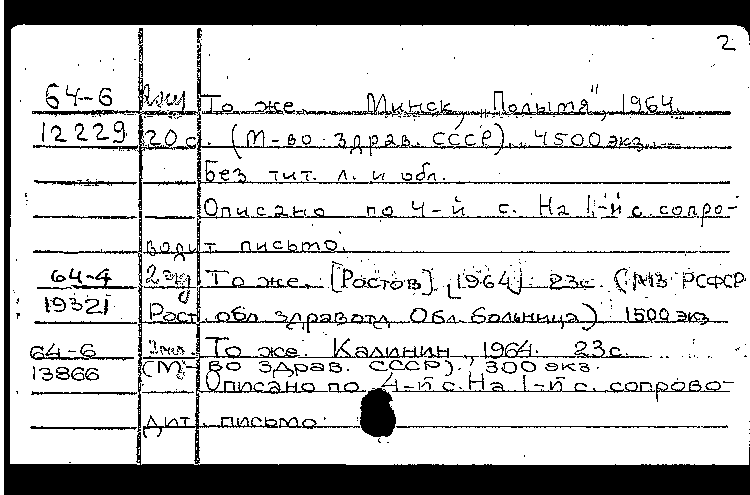 2
64-6 2экз То же. Минск, „Полымя", 1964.
12229 20 с. (М-во здрав. СССР). 4500 экз.
Без тит. л. и обл.
Описано по 4-й с. На 1-й с. сопро-
водит письмо.
64-4 2 эк. То же. [Ростов], [1964]. 23с. (МЗ РСФСР
19321 Рост. обл. здравотд. Обл. больница) 1500 экз
64-6 То же. Калинин, 1964. 23с.
13866 (М-во здрав. СССР). 300 экз.
Описано по 4-й с. На 1-й с. сопрово-
дит. письмо.